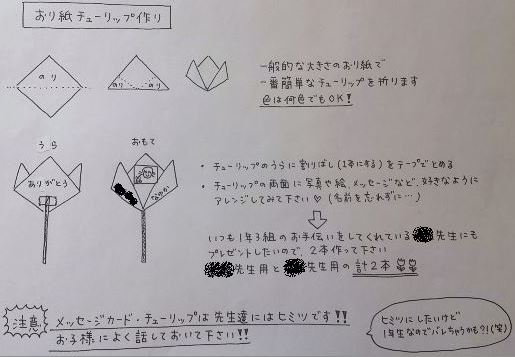 おり紙チューリップ作り
のり
のり のり
一般的な大きさのおり紙で
一番簡単なチューリップを折ります
色は何色でもOK!
うら
おもて
ありがとう
・チューリップのうらに割りばし(1本にする)をテープでとめる
・チューリップの両面に写真や絵、メッセージなど、好きなように
アレンジしてみて下さい♡(名前を忘れずに…)
いつも1年3組のお手伝いをしてくれている 先生にも
プレゼントしたいので、2本作って下さい
先生用と 先生用の計2本
注意
メッセージカード・チューリップは先生達にはヒミツです!!
お子様によく話しておいて下さい!!
ヒミツにしたいけど
1年生なのでバレちゃうかも?!(笑)